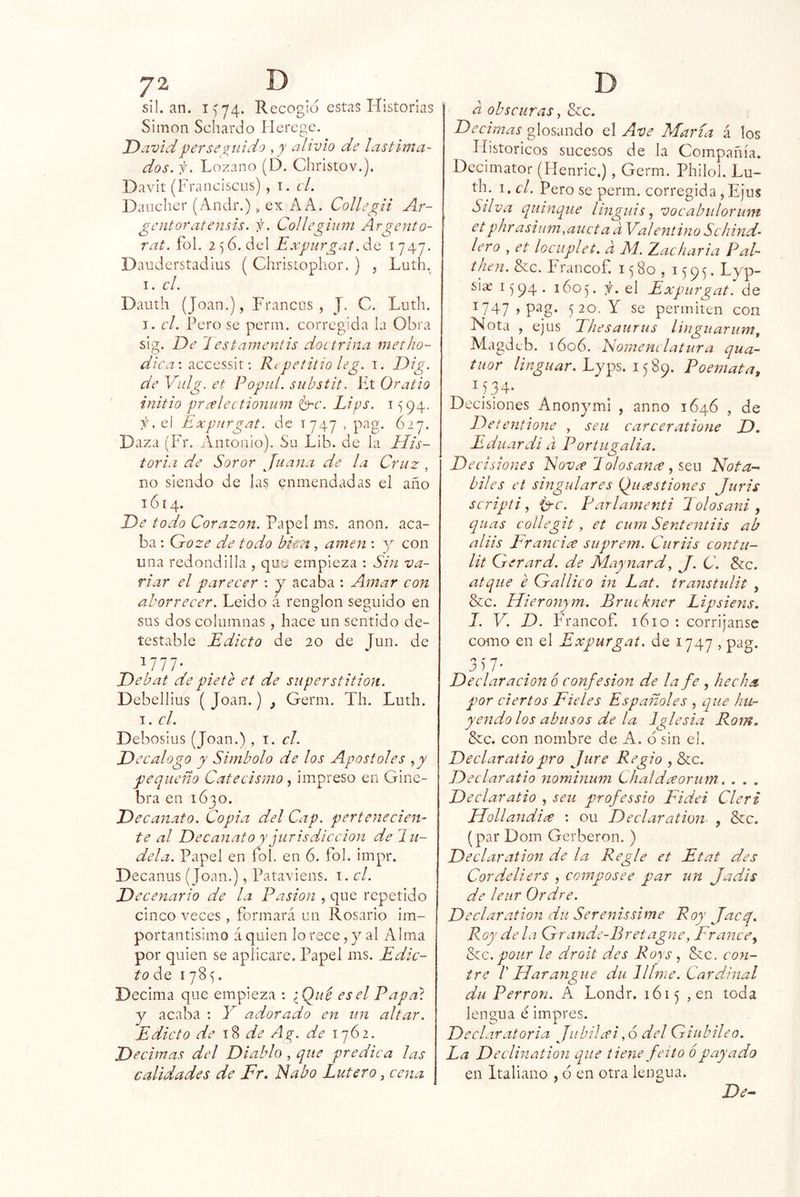 72 D
sil. an. 1574. Recogió estas Historias
Simon Schardo Herege.
David perseguido , y alivio de lastima-
dos. ỳ. Lozano (D. Christov.).
Davit (Franciscus) , 1. cl.
Daucher (Andr.) , ex AA. Collegii Ar-
gentoratensis. ỳ. Collegium Argento-
rat. fol. 256. del Expurgat. de 1747.
Dauderstadius ( Christophor. ) , Luth.
1. cl.
Dauth (Joan.), Francus , J. C. Luth.
1. cl. Pero se perm. corregida la Obra
sig. De Testamentis doctrina metho-
dica: accessit: Repetitio leg. 1. Dig.
de Vulg. et Popul. substit. Et Oratio
initio prælectionum &c. Lips. 1594.
ỳ. el Expurgat. de 1747 , pag. 627.
Daza (Fr. Antonio). Su Lib. de la His-
toria de Soror Juana de la Cruz ,
no siendo de las enmendadas el año
1614.
De todo Corazon. Papel ms. anon. aca-
ba : Goze de todo bien , amen : y con
una redondilla , que empieza : Sin va-
riar el parecer : y acaba : Amar con
aborrecer. Leido á renglon seguido en
sus dos columnas , hace un sentido de-
testable Edicto de 20 de Jun. de
1777.
Debat de pietè et de superstition.
Debellius ( Joan. ) , Germ. Th. Luth.
1. cl.
Debosius (Joan.) , 1. cl.
Decalogo y Simbolo de los Apostoles , y
pequeño Catecismo , impreso en Gine-
bra en 1630.
Decanato. Copia del Cap. pertenecien-
te al Decanato y jurisdiccion de Tu-
dela. Papel en fol. en 6. fol. impr.
Decanus (Joan.) , Pataviens. 1. cl.
Decenario de la Pasion , que repetido
cinco veces , formará un Rosario im-
portantisimo á quien lo rece , y al Alma
por quien se aplicare. Papel ms. Edic-
to de 1785.
Decima que empieza : ¿Qué es el Papa?
y acaba : Y adorado en un altar.
Edicto de 18 de Ag. de 1762.
Decimas del Diablo , que predica las
calidades de Fr. Nabo Lutero , cena
D
à obscuras , &c.
Decimas glosando el Ave María á los
Historicos sucesos de la Compañía.
Decimator (Henric.) , Germ. Philol. Lu-
th. 1. cl. Pero se perm. corregida , Ejus
Silva quinque linguis , vocabulorum
et phrasium , aucta à Valentino Schind-
lero , et locuplet. à M. Zacharia Pal-
then. &c. Francof. 1580 , 1595. Lyp-
siæ 1594. 1605. ỳ. el Expurgat. de
1747 , pag. 520. Y se permiten con
Nota , ejus Thesaurus linguarum,
Magdeb. 1606. Nomenclatura qua-
tuor linguar. Lyps. 1589. Poemata,
1534.
Decisiones Anonymi , anno 1646 , de
Detentione , seu carceratione D.
Eduardi à Portugalia.
Decisiones Novæ Tolosanæ , seu Nota-
biles et singulares Quæstiones Juris
scripti , &c. Parlamenti Tolosani ,
quas collegit , et cum Sententiis ab
aliis Franciæ suprem. Curiis contu-
lit Gerard. de Maynard, J. C. &c.
atque è Gallico in Lat. transtulit ,
&c. Hieronym. Bruckner Lipsiens.
I. V. D. Francof. 1610 : corrijanse
como en el Expurgat. de 1747 , pag.
357.
Declaracion ó confesion de la fe , hecha
por ciertos Fieles Españoles , que hu-
yendo los abusos de la Iglesia Rom.
&c. con nombre de A. ó sin el.
Declaratio pro Jure Regio , &c.
Declaratio nominum Chaldæorum. . . .
Declaratio , seu professio Fidei Cleri
Hollandiæ : ou Declaration , &c.
( par Dom Gerberon. )
Declaration de la Regle et Etat des
Cordeliers , composee par un Jadis
de leur Ordre.
Declaration du Serenissime Roy Jacq.
Roy de la Grande-Bretagne, France,
&c. pour le droit des Roys , &c. con-
tre l' Harangue du Illme. Cardinal
du Perron. A Londr. 1615 , en toda
lengua é impres.
Declaratoria Jubilæi , ó del Giubileo.
La Declination que tiene feito ó payado
en Italiano , ó en otra lengua.
De-